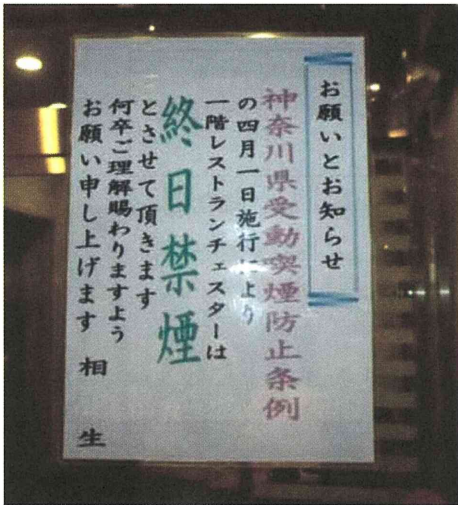 お願いとお知らせ
神奈川県受動喫煙防止条例
の四月一日施行により
一階レストランチェスターは
終日禁煙
とさせて頂きます
何卒ご理解賜わりますよう
お願い申し上げます 相 生